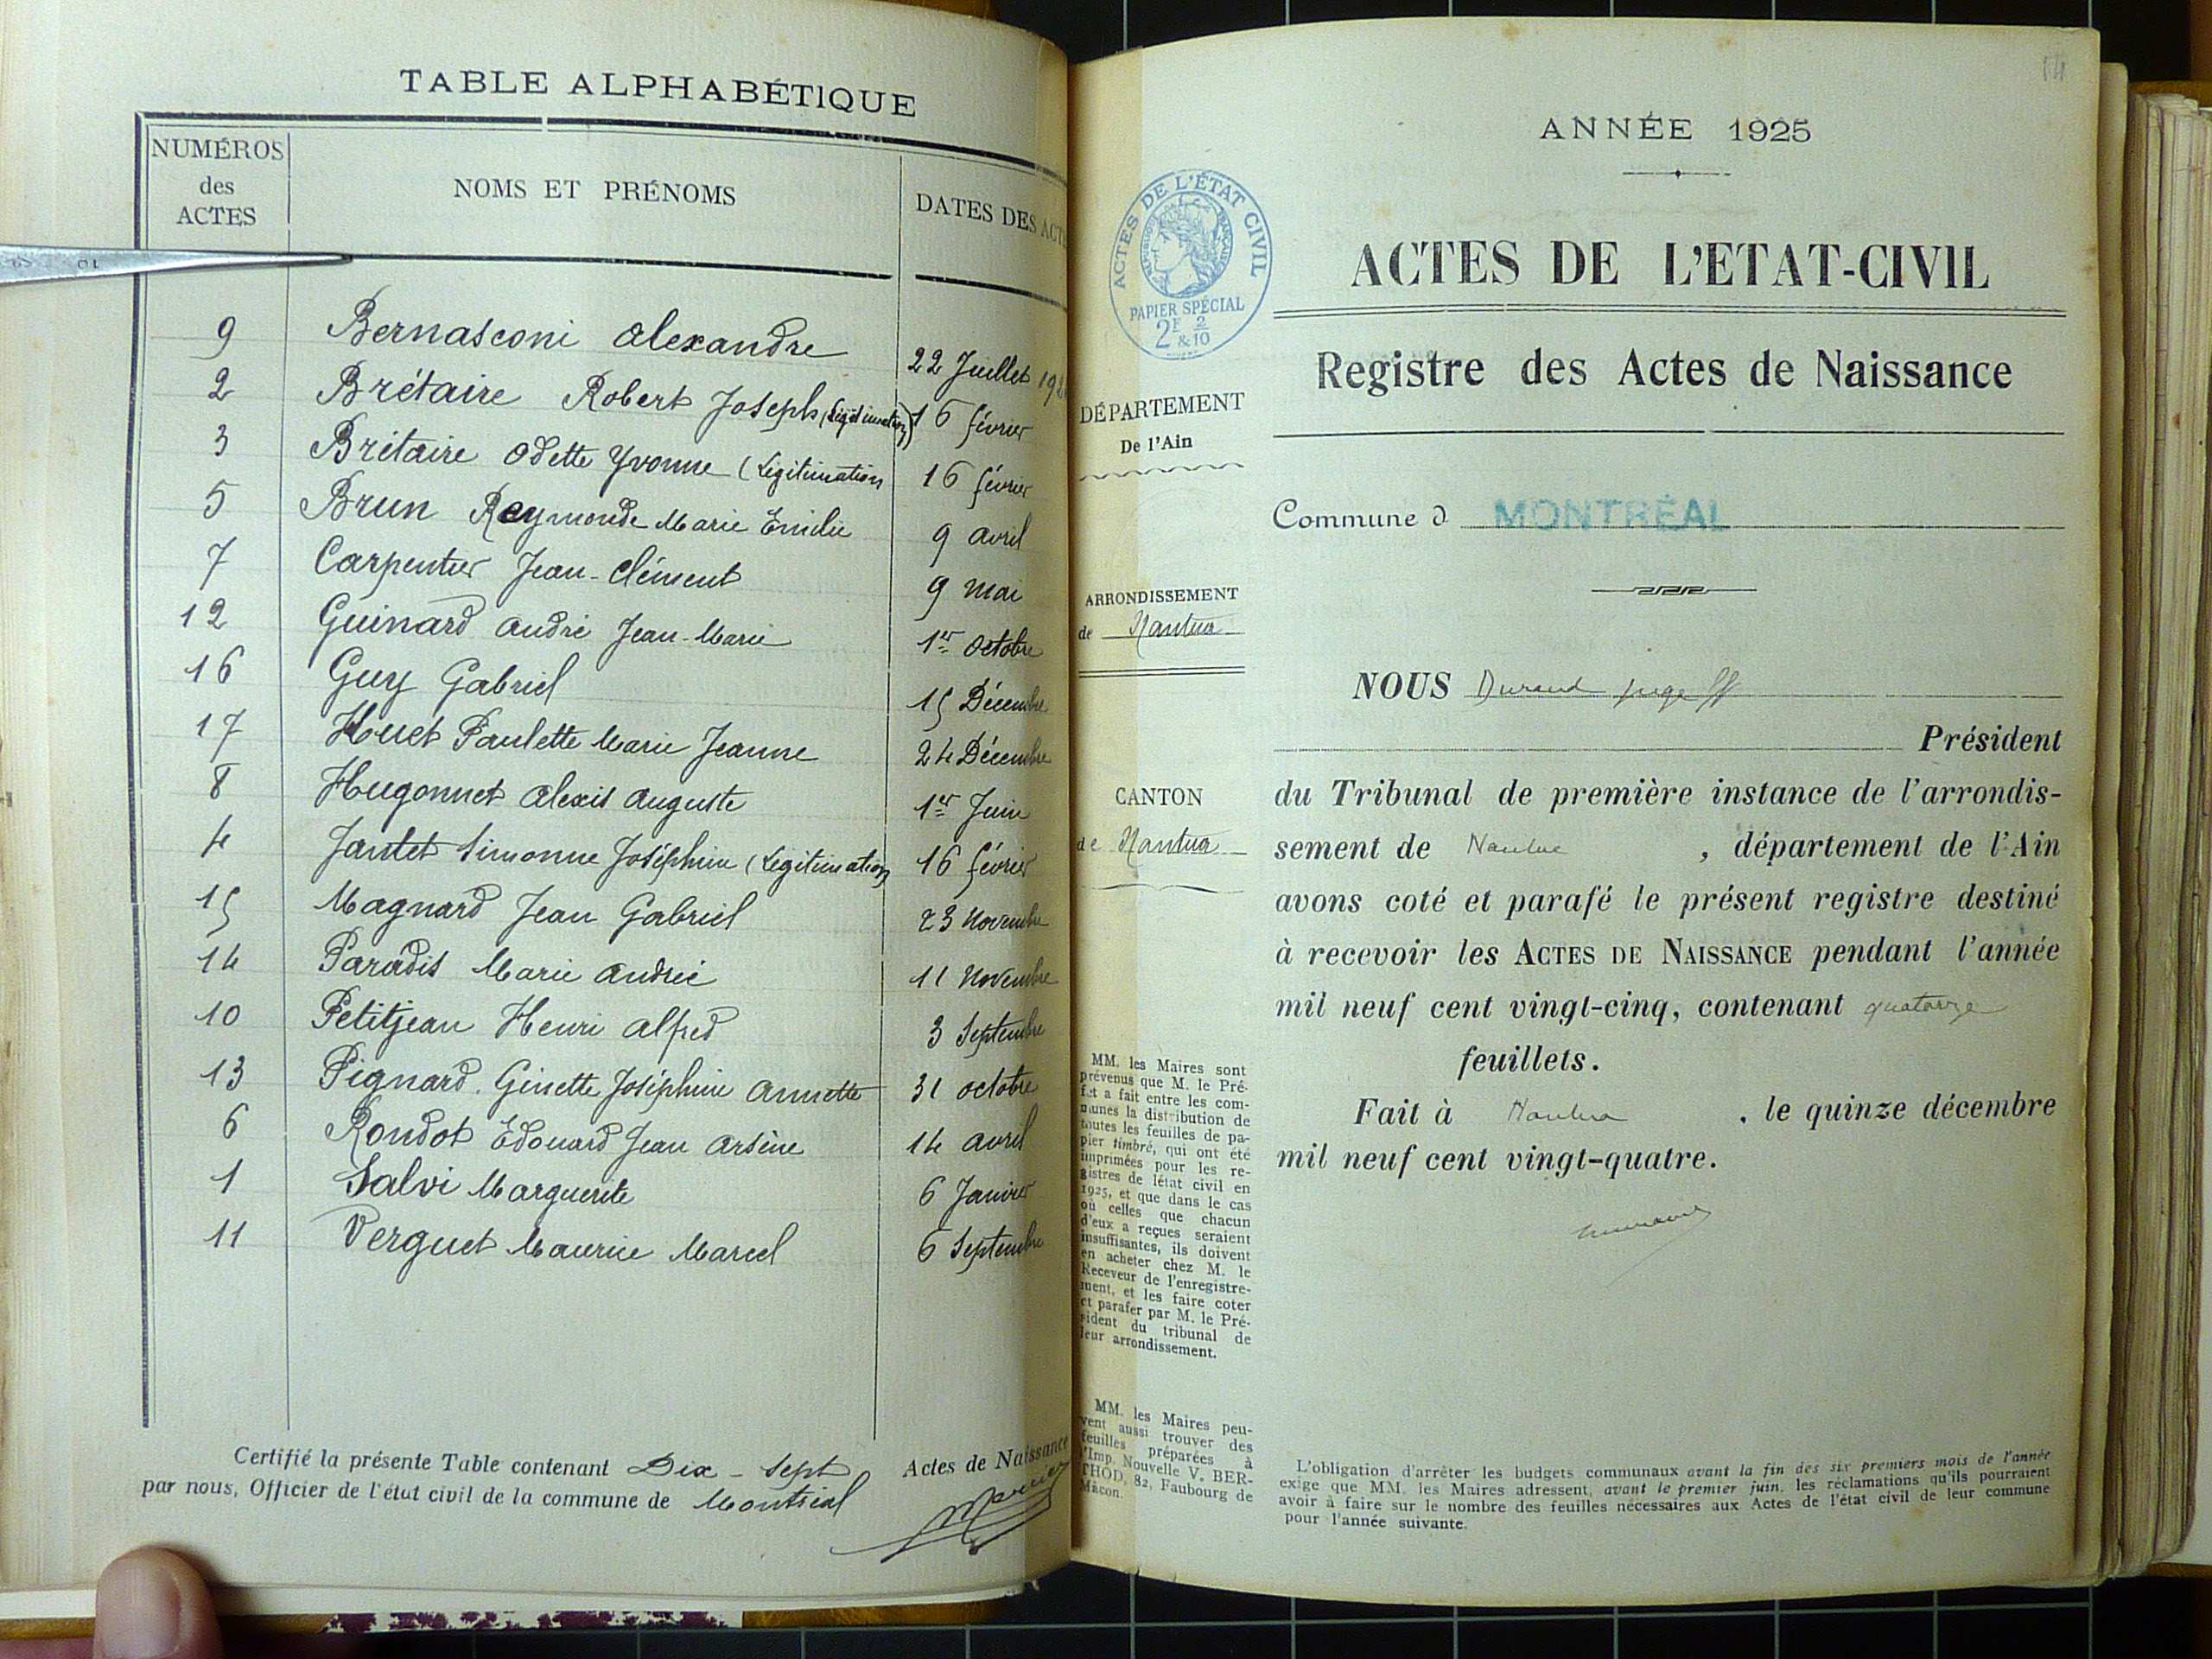 TABLE ALPHABÉTIQUE
NUMÉROS des ACTES
NOMS ET PRÉNOMS
DATES DES ACT
9 Bernasconi Alexandre 22 Juillet
2 Brétaire Robert Joseph (Légitimation) 16 février
3 Brétaire Odette Yvonne (Légitimation 16 février
5 Brun Raymonde Marie Emilie 9 avril
7 Carpentier Jean-Clément 9 Mai
12 Guinard André Jean-Marie 1er Octobre
16 Guy Gabriel 15 Décembre
17 Huet Paulette Marie Jeanne 24 Décembre
8 Hugonnet Alexis Auguste 1er Juin
4 Jantet Simonne Joséphine (Légitimation) 16 février
15 Magnard Jean Gabriel 23 Novembre
14 Paradis Marie Andrée 11 Novembre
10 Petitjean Henri Alfred 3 Septembre
13 Pignard Ginette Joséphine Annette 31 octobre
6 Rondot Edouard Jean Arsène 14 avril
1 Salvi Marguerite 6 Janvier
11 Verguet Maurice Marcel 6 Septembre
Certifié la présente Table contenant Dix-Sept Actes de Naissance
par nous, Officier de l'état civil de la commune de Montréal
ANNÉE 1925
ACTES DE L'ÉTAT CIVIL
RÉPUBLIQUE FRANÇAISE
PAPIER SPÉCIAL
2F & 2/10
ACTES DE L'ETAT-CIVIL
Registre des Actes de Naissance
DÉPARTEMENT
De l'Ain
Commune d MONTRÉAL
ARRONDISSEMENT
de Nantua
CANTON
de Nantua
NOUS Durand juge ff
Président
du Tribunal de première instance de l'arrondis-
sement de Nantua, département de l'Ain
avons coté et parafé le présent registre destiné
à recevoir les ACTES DE NAISSANCE pendant l'année
mil neuf cent vingt-cinq, contenant quatorze
feuillets.
Fait à Nantua, le quinze décembre
mil neuf cent vingt-quatre.
MM. les Maires sont
prévenus que M. le Pré-
fet a fait entre les com-
munes la distribution de
toutes les feuilles de pa-
pier timbré, qui ont été
imprimées pour les re-
gistres de létat civil en
1925, et que dans le cas
où celles que chacun
d'eux a reçues seraient
insuffisantes, ils doivent
en acheter chez M. le
Receveur de l'enregistre-
ment, et les faire coter
et parafer par M. le Pré-
sident du tribunal de
leur arrondissement.
MM. les Maires peu-
vent aussi trouver des
feuilles préparées à
l'Imp. Nouvelle V. BER-
THOD, 82, Faubourg de
Mâcon.
L'obligation d'arrêter les budgets communaux avant la fin des six premiers mois de l'année
exige que MM. les Maires adressent, avant le premier juin, les réclamations qu'ils pourraient
avoir à faire sur le nombre des feuilles nécessaires aux Actes de l'état civil de leur commune
pour l'année suivante.